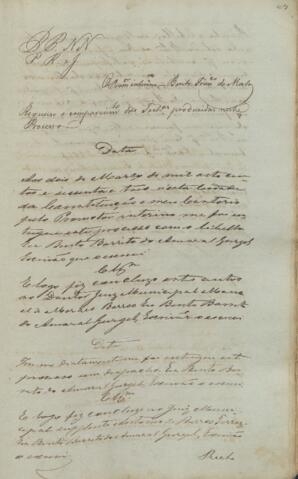 P. P. N. N.
P. R. e J.
O Prom.or interino — Bento Fran.co de Mattos
Requeiro o comparecim.to das Test.as produzidas neste
Processo
Data
Aos dois de Março de mil oito cen
tos e sessenta e tres nesta Cidade
da Constituição e meu Cartorio
pelo Promotor interino me foi en
tregue este processo com o libello
Eu Bento Barreto do Amaral Gurgel
Escrivão que o escrevi
Clz.m
E logo fiz conclusos estes autos
ao Doutor Juiz Municipal Mano
el de Moraes Barros Eu Bento Barreto
do Amaral Gurgel, Escrivão o escrevi
Data
Em no mesmo foi entregue este
processo com despacho. Eu Bento Bar
reto do Amaral Gurgel, Escrivão o escrevi
Clz.m
E logo fiz concluso ao Juiz Muni
cipal supplente Antonio de Barros Ferraz
Eu Bento Barreto do Amaral Gurgel, Escrivão
o escrevi